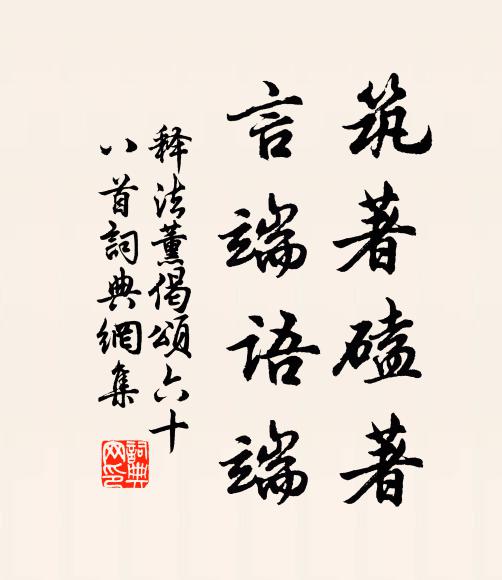 筑著磕著
言端语端
释法薰偈頌六十
八首詞典網集
詞典
网印